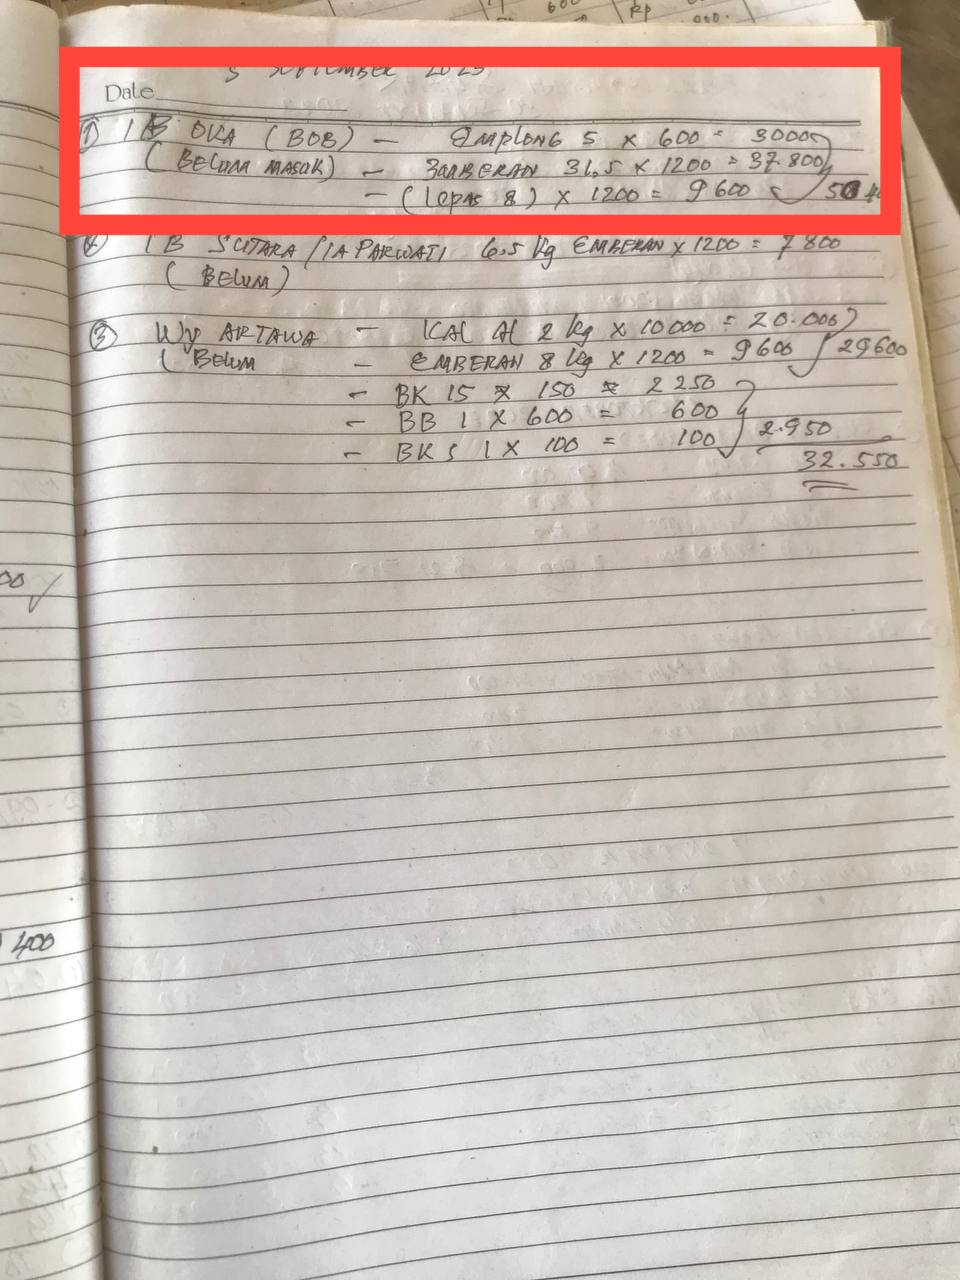 600 Rp
000.
SEPTEMBER 2023
Date
① IB OKA (BOB) - EMPLONG 5 x 600 = 3000
(BELUM MASUK) - EMBERAN 31,5 x 1200 = 37.800
- (lepas 8) x 1200 = 9600
② IB SUTARA / IA PARWATI 6,5 kg EMBERAN x 1200 = 7800
(BELUM)
③ Wy ARTAWA - KAL AL 2 kg x 10000 = 20.000
(BELUM - EMBERAN 8 kg x 1200 = 9600 29600
- BK 15 x 150 = 2250
- BB 1 x 600 = 600
- BKS 1 x 100 = 100 2.950
32.550
00
400